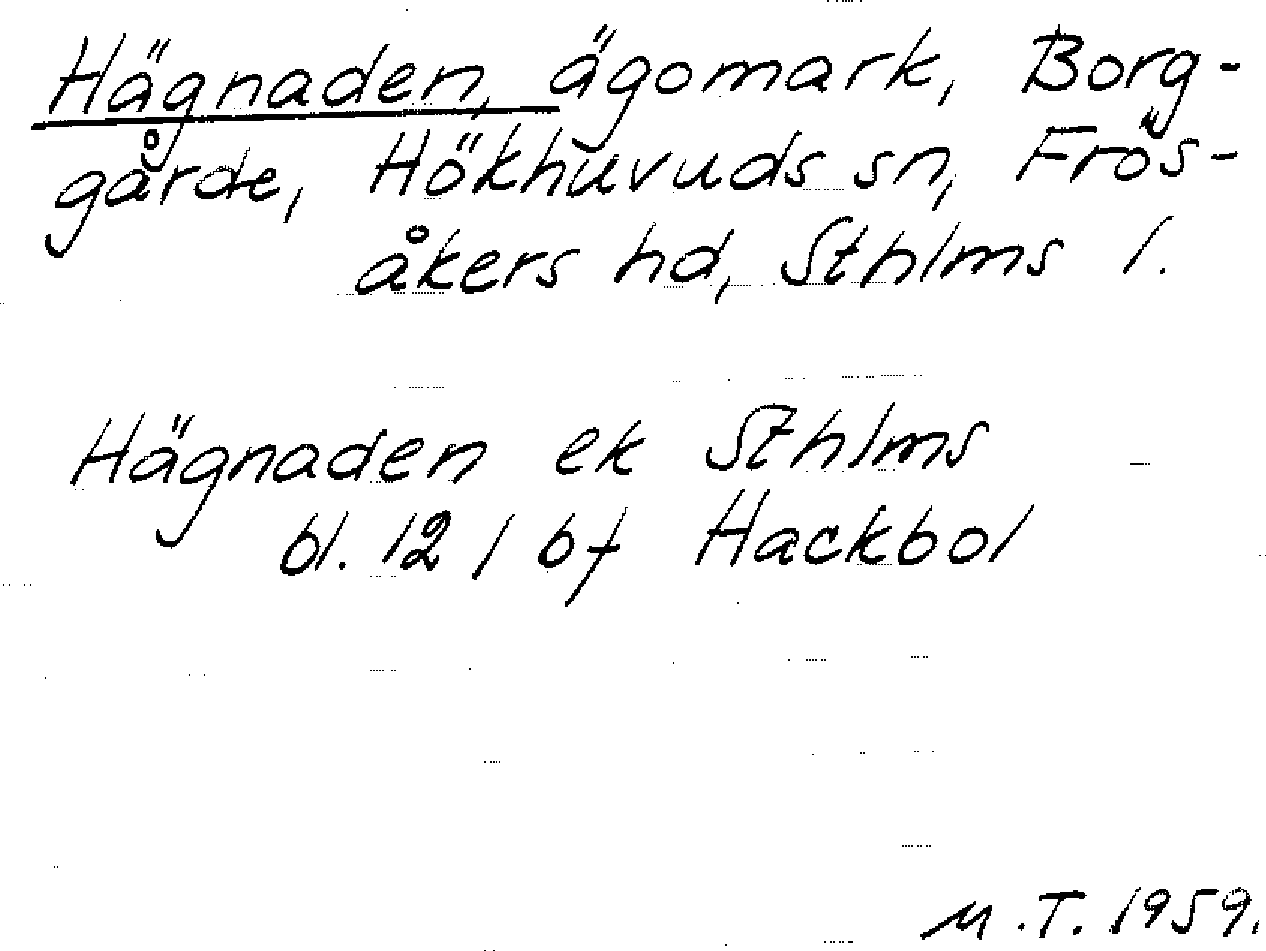 Hägnaden, ägomark, Borg-
gårde, Hökhuvuds sn, Frös-
åkers hd, Sthlms l.
Hägnaden ek Sthlms
bl. 12 / bf Hackbol
M.T. 1959.